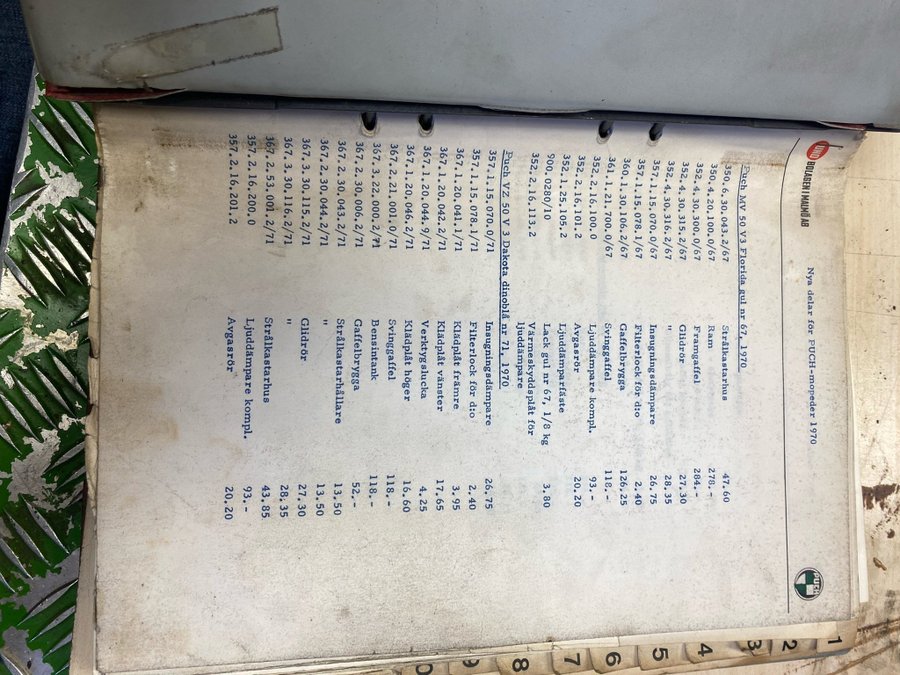 UNO BOLAGEN I MALMÖ AB
Nya delar för PUCH-mopeder 1970
PUCH
Puch MV 50 V3 Florida gul nr 67, 1970
350.6.30.043.2/67 Strålkastarhus 47.60
350.4.20.100.0/67 Ram 278.-
352.4.30.300.0/67 Framgaffel 284.-
352.4.30.315.2/67 Glidrör 27.30
352.4.30.316.2/67 " 28.35
357.1.15.070.0/67 Insugningsdämpare 26.75
357.1.15.078.1/67 Filterlock för d:o 2.40
360.1.30.106.2/67 Gaffelbrygga 126.25
361.1.21.700.0/67 Svinggaffel 118.-
352.2.16.100.0 Ljuddämpare kompl. 93.-
352.2.16.101.2 Avgasrör 20.20
352.1.25.105.2 Ljuddämparfäste
900.0280/10 Lack gul nr 67, 1/8 kg 3.80
352.2.16.113.2 Värmeskyddsplåt för
ljuddämpare
Puch VZ 50 V 3 Dakota dinoblå nr 71, 1970
357.1.15.070.0/71 Insugningsdämpare 26.75
357.1.15.078.1/71 Filterlock för d:o 2.40
367.1.20.041.1/71 Klädplåt främre 3.95
367.1.20.042.2/71 Klädplåt vänster 17.65
367.1.20.044.9/71 Verktygslucka 4.25
367.1.20.046.2/71 Klädplåt höger 16.60
367.2.21.001.0/71 Svinggaffel 118.-
367.3.22.000.2/71 Bensintank 118.-
367.2.30.006.2/71 Gaffelbrygga 52.-
367.2.30.043.2/71 Strålkastarhållare 13.50
367.2.30.044.2/71 " 13.50
367.3.30.115.2/71 Glidrör 27.30
367.3.30.116.2/71 " 28.35
367.2.53.001.2/71 Strålkastarhus 43.85
357.2.16.200.0 Ljuddämpare kompl. 93.-
357.2.16.201.2 Avgasrör 20.20
1
2
3
4
5
6
7
8
9